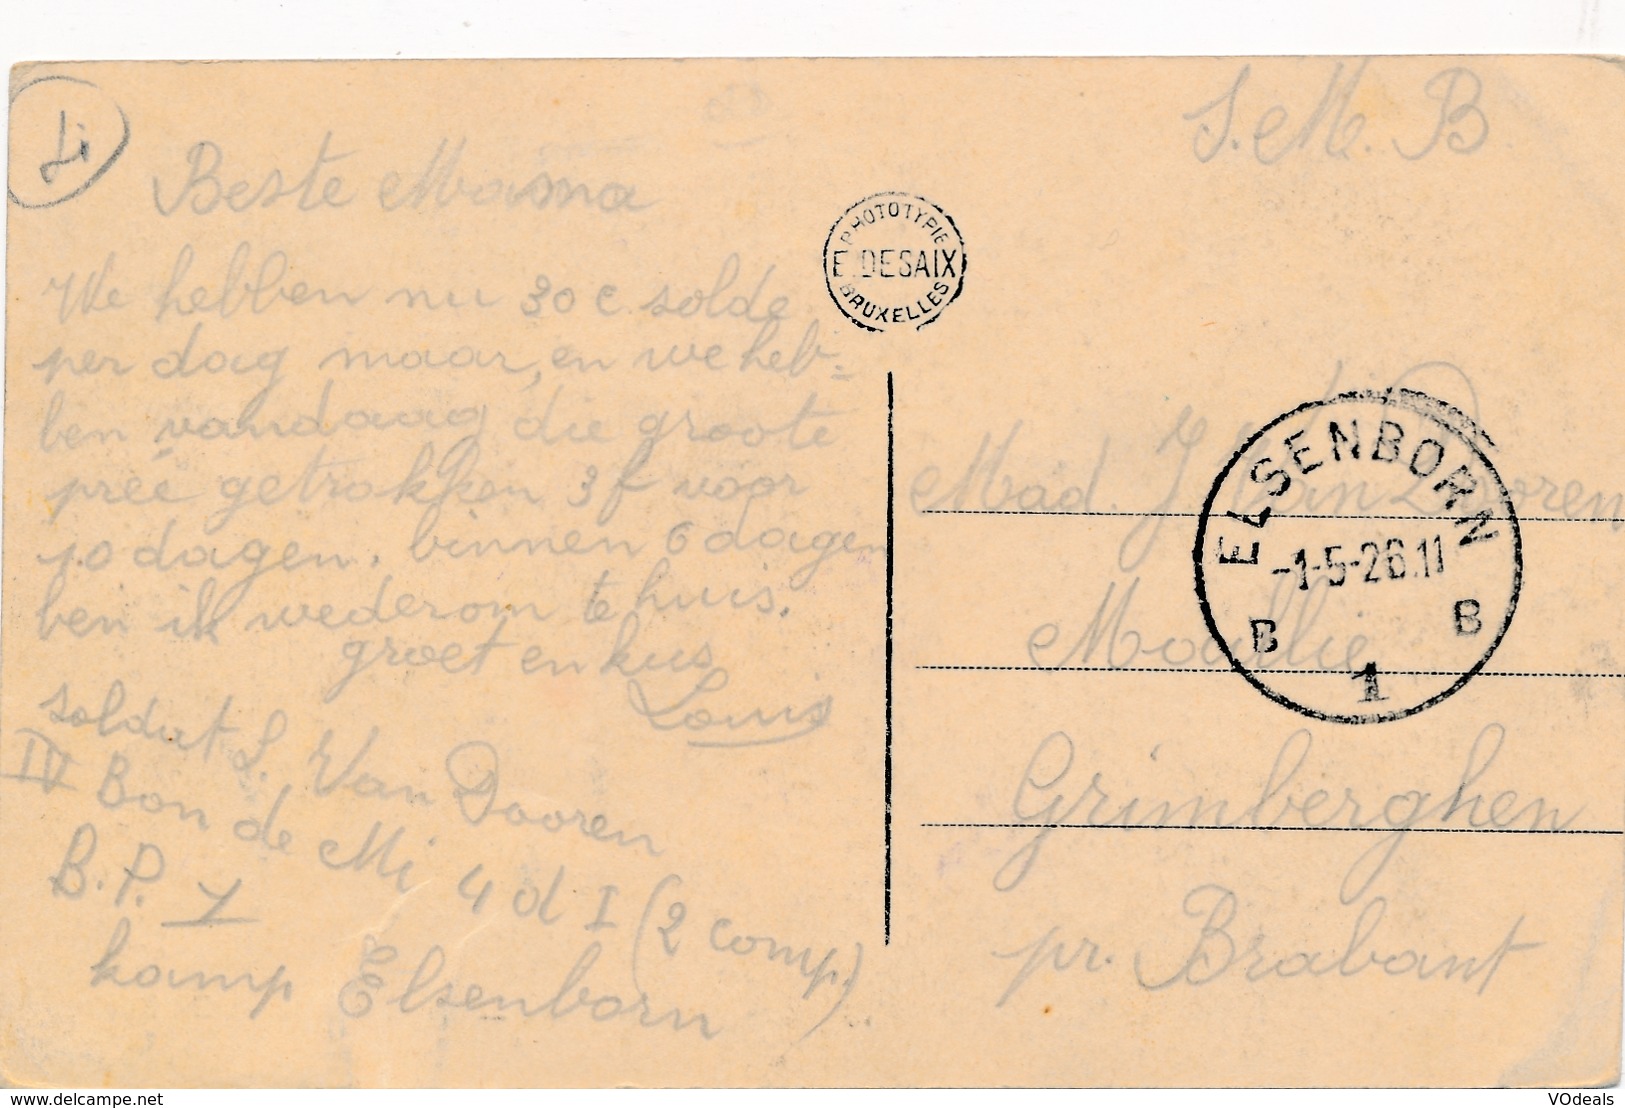 Li
Beste Mama
We hebben nu 30 c. solde
per dag maar, en we heb-
ben vandaag die groote
préé getrokken 3 f voor
10 dagen. binnen 6 dagen
ben ik wederom te huis.
groet en kus
Louis
soldat L. Van Dooren
IV Bon de Mi 4 d I (2 comp.)
B.P. 1
kamp Elsenborn
PHOTOTYPIE
E. DESAIX
BRUXELLES
S.M.B
Mad. J. Van Dooren
Grimberghen
pr. Brabant
ELSENBORN
-1-5-26.11
B B
1
delcampe.net
VOdeals